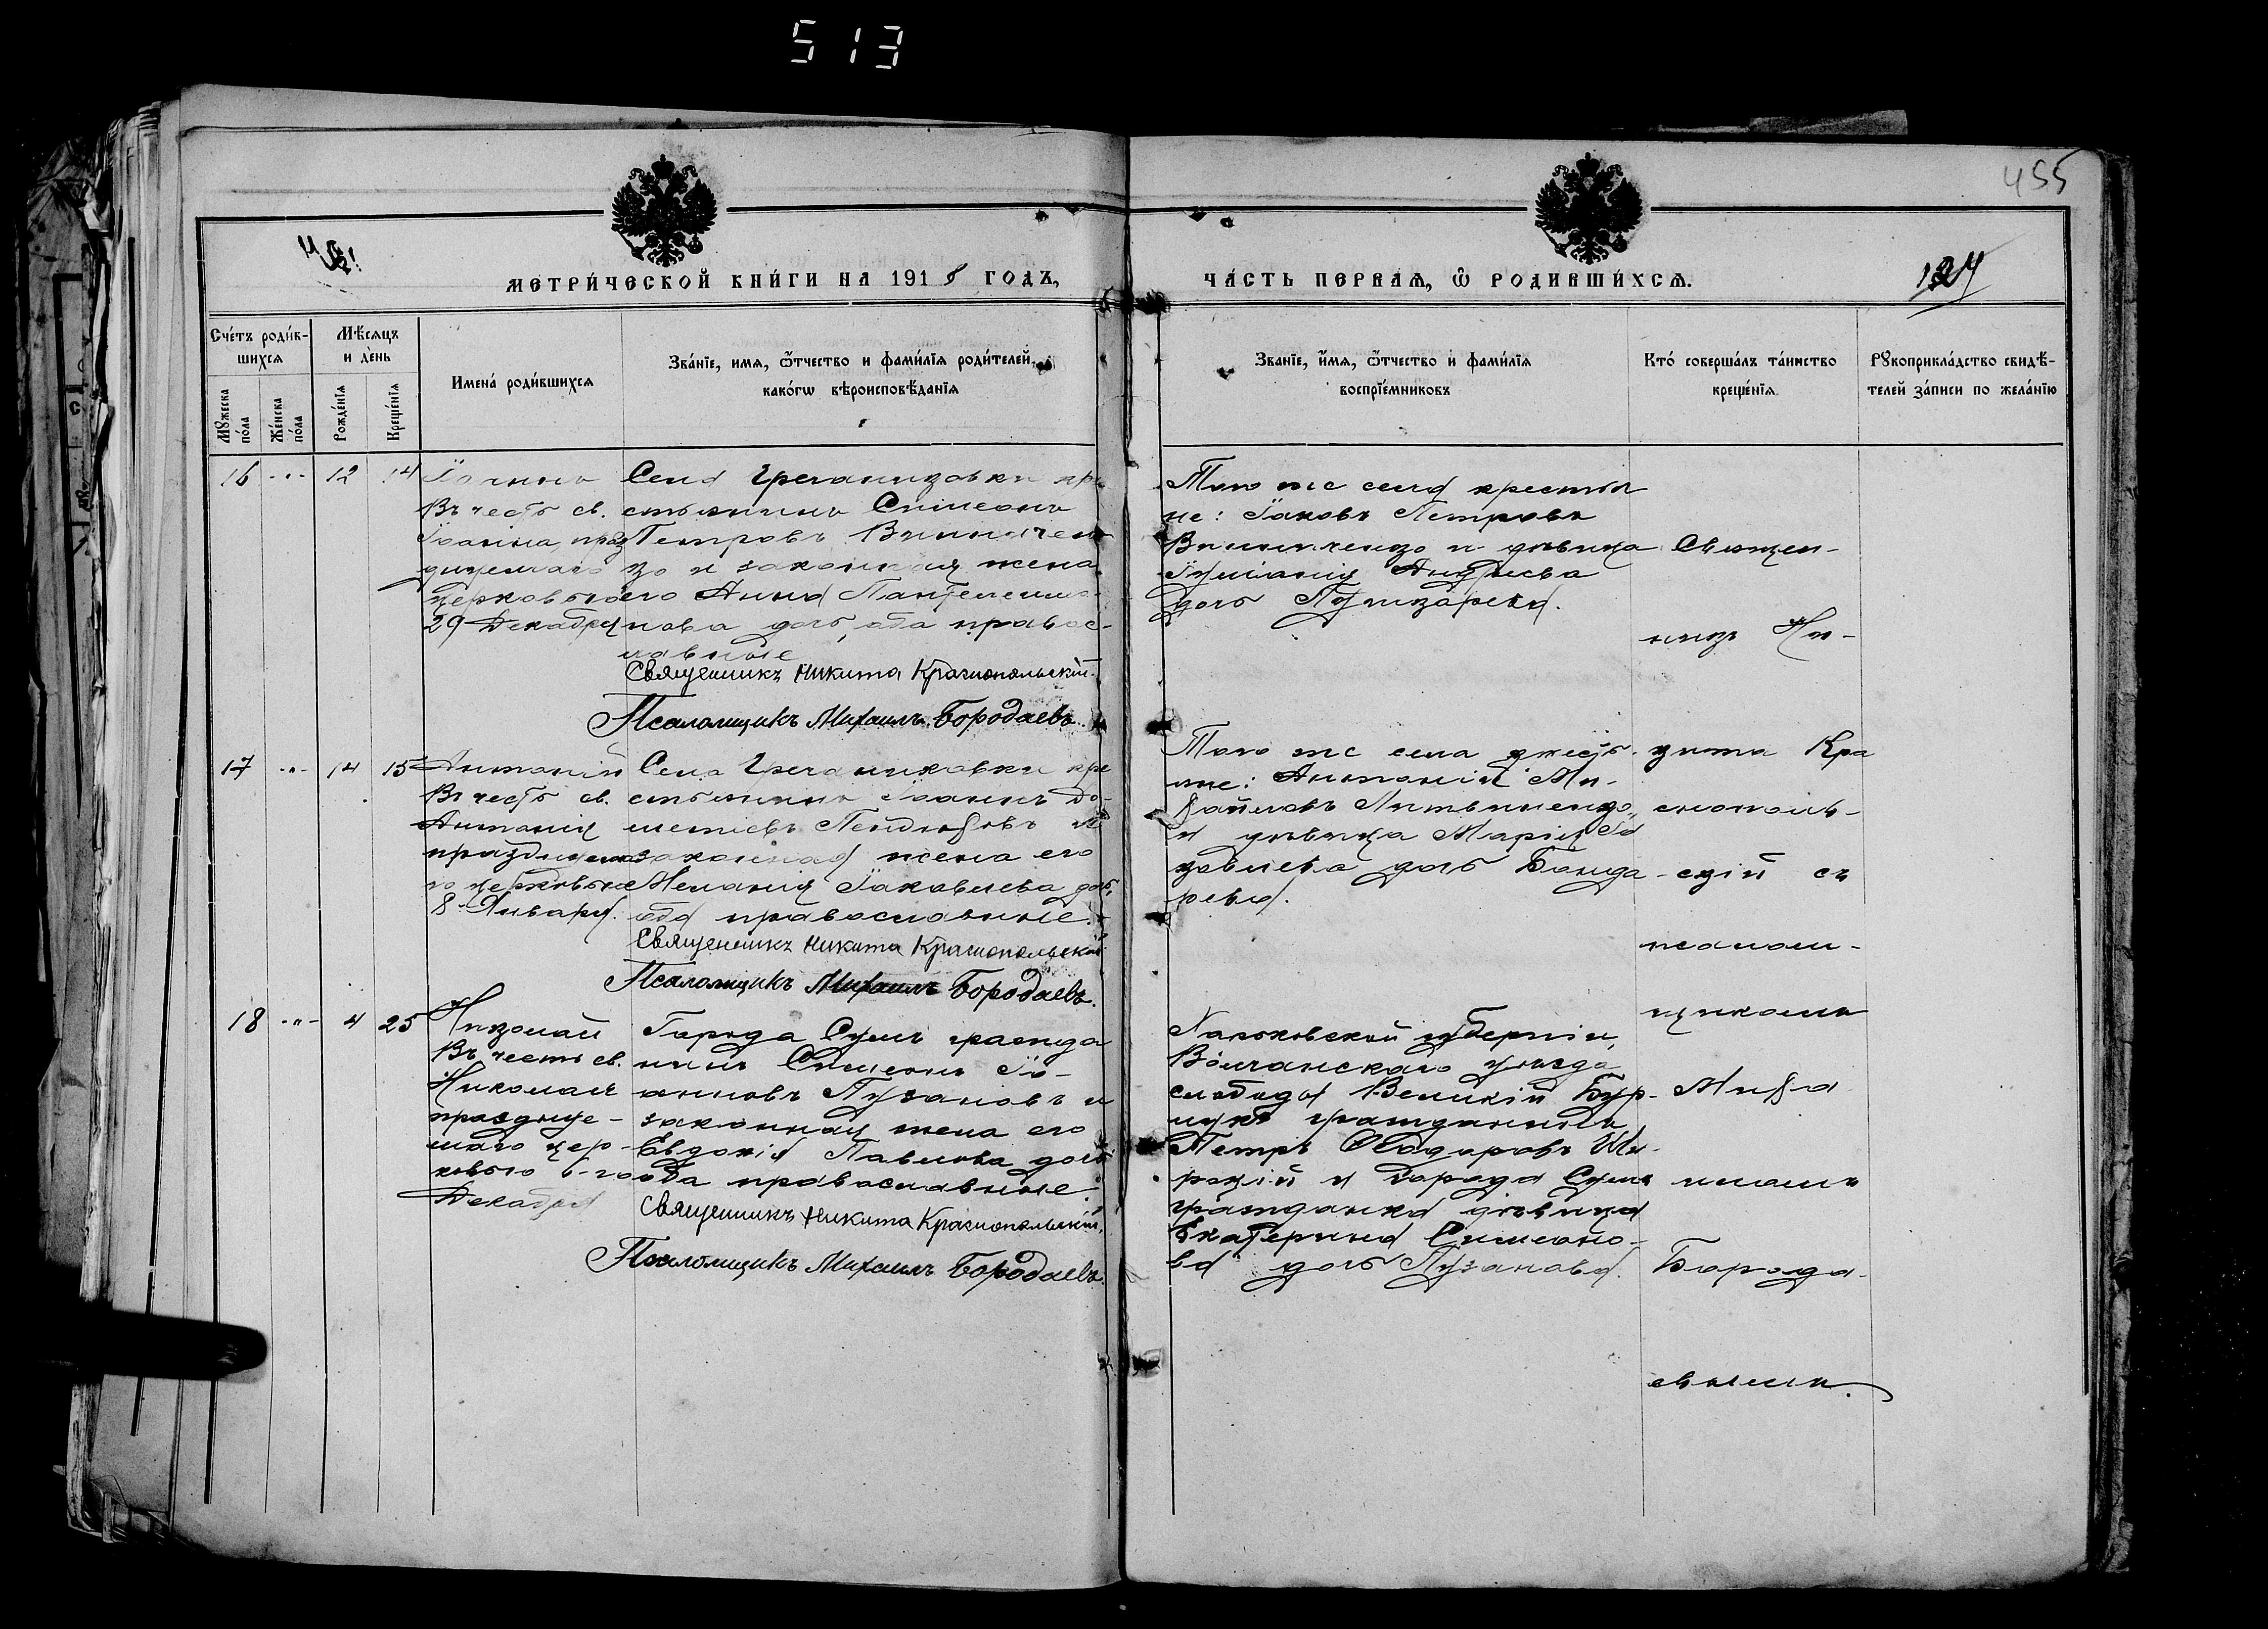 513
455
МЕТРИ́ЧЕСКОЙ КНИ́ГИ НА 1918 ГОДЪ,
ЧА́СТЬ ПЕРВАѦ, Ѿ РОДИВШИ́ХСѦ.
124
Сче́тъ роди́в-
шихсѧ
Мꙋжеска
по́ла
Же́нска
по́ла
Мѣ́сѧцъ
и де́нь
Рожде́нїѧ
Креще́нїѧ
Имена́ роди́вшихсѧ
Зва́нїе, имѧ, ѿтчество и фами́лїѧ роди́телей,
како́гѡ вѣроисповѣ́данїѧ
Званїе, и́мѧ, ѿтчество и фами́лїѧ
воспрїе́мниковъ
Кто́ соверша́лъ та́инство
креще́нїѧ
Рꙋкоприкла́дство свидѣ́-
телей за́писи по жела́нію
16 -"- 12 14
Іоаннъ
Въ честь св.
Іоанна, праз
днуемаго
церковью
29 Декабря
Села Гречаниковки кре
стьянинъ Симеонъ
Петровъ Винничен
ко и законная жена
его Анна Пантелеимо-
нова дочь, оба правос-
лавные
Священникъ Никита Краснопольскій.
Псаломщикъ Михаилъ Бородаевъ.
Того же села крестья
не: Іаковъ Петровъ
Винниченко и девица
Андреева
дочь
17 -"- 14 15
Антоній
Въ честь св.
Антонія
празднуема
го церковью
8 Января.
Села Гречаниковки кре
стьянинъ Іоаннъ До-
метіевъ и
законная жена его
Меланія Іаковлева дочь,
оба православные.
Священникъ Никита Краснопольскій
Псаломщикъ Михаилъ Бородаевъ.
Того же села крестья
не: Антоній Ми-
хайловъ Литвиненко
и девица Марія Іа
ковлева дочь Бонда-
рева.
18 -"- 4 25
Николай
Въ честь св.
Николая
праздкуе-
маго цер-
ковью 6-го
Декабря
Города Сумъ гражда
нинъ Симеонъ Іо-
анновъ Пузановъ и
законная жена его
Евдокія Павлова дочь
оба православные.
Священникъ Никита Краснопольскій.
Псаломщикъ Михаилъ Бородаевъ.
Харьковской губерніи,
Волчанскаго уезда
слободы Великій Бур-
лукъ гражданинъ
Петръ Ѳеодоровъ Ши-
рокій и города Сумъ
гражданка девица
Екатерина Симеоно-
ва дочь Пузанова.
Священ-
никъ Ни-
кита Кра
снополь-
скій съ
псалом-
щикомъ
Миха
иломъ
Борода-
евымъ.